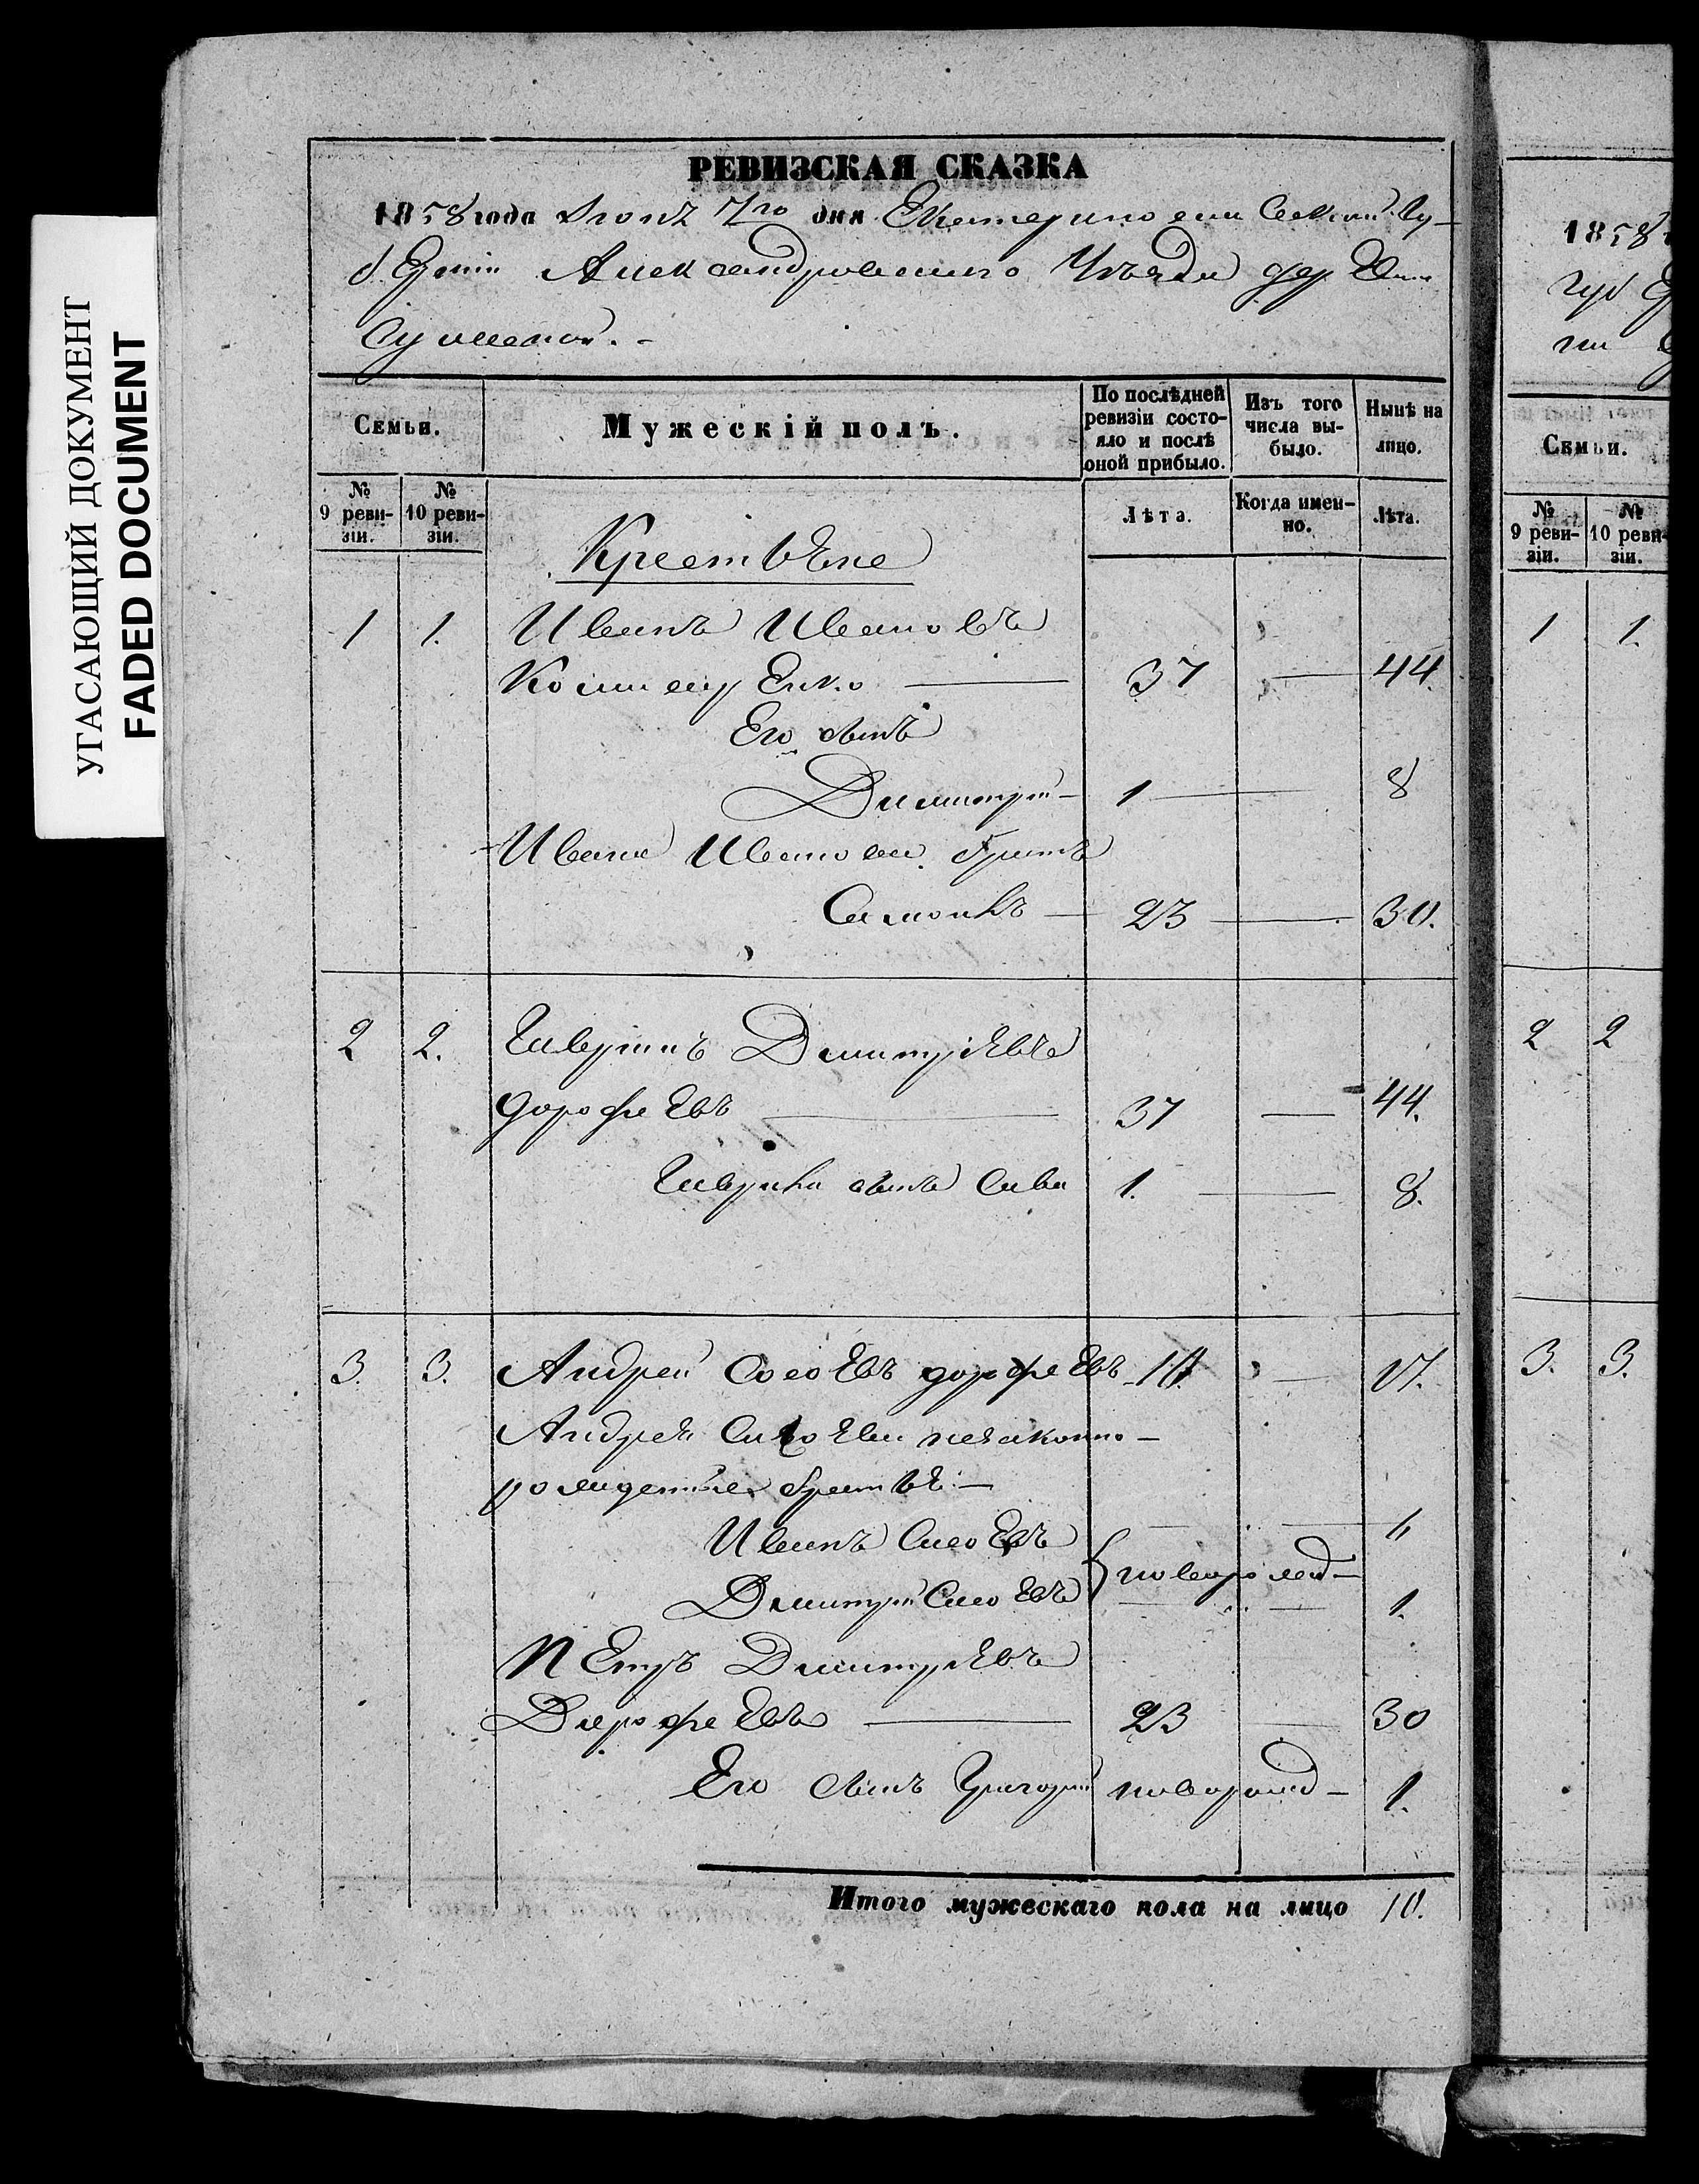 УГАСАЮЩИЙ ДОКУМЕНТ
FADED DOCUMENT
РЕВИЗСКАЯ СКАЗКА
1858 года Іюня 7го дня Екатеринославской Гу-
берніи Александровскаго Уѣзда дер.
По послѣдней ревизіи состо-яло и послѣ оной прибыло.
Изъ того числа вы-было.
Нынѣ на лицо.
Семьи.
Мужескій полъ.
№ 9 реви-зіи.
№ 10 реви-зіи.
Лѣта.
Когда имен-но.
Лѣта.
Крестьяне
1 1. Иванъ Ивановъ
37 — 44.
Его сынъ
Дмитрій — 1 — 8
Ивана Иванова братъ
23 — 30.
2 2. Гаврилъ Дмитріевъ
Дорофеевъ — 37 — 44.
Гаврила сынъ Сава 1. — 8.
3. 3. Андрей Савоевъ Дорофеевъ 10. — 17.
Андрея Савоева незаконно-
рожденные братья —
Иванъ Савоевъ
новорожд —
Дмитрій Савоевъ — 1.
Петръ Дмитріевъ
Дорофеевъ — 23 — 30
Его сынъ Григорій новорожд — 1.
Итого мужескаго пола на лицо 10.
1858
Семьи.
№ 9 реви-зіи.
№ 10 реви-зіи.
1 1.
2 2
3. 3.